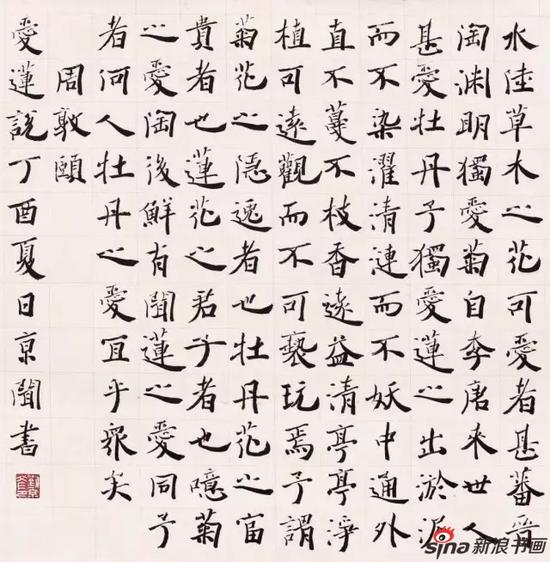 水陸草木之花可愛者甚蕃晉
陶渊明獨愛菊自李唐来世人
甚愛牡丹予獨愛蓮之出淤泥
而不染濯清漣而不妖中通外
直不蔓不枝香遠益清亭亭淨
植可遠觀而不可褻玩焉予謂
菊花之隱逸者也牡丹花之富
貴者也蓮花之君子者也噫菊
之愛陶後鮮有聞蓮之愛同予
者何人牡丹之愛宜乎衆矣
周敦頤
愛蓮說丁酉夏日京聞書
sina 新浪书画